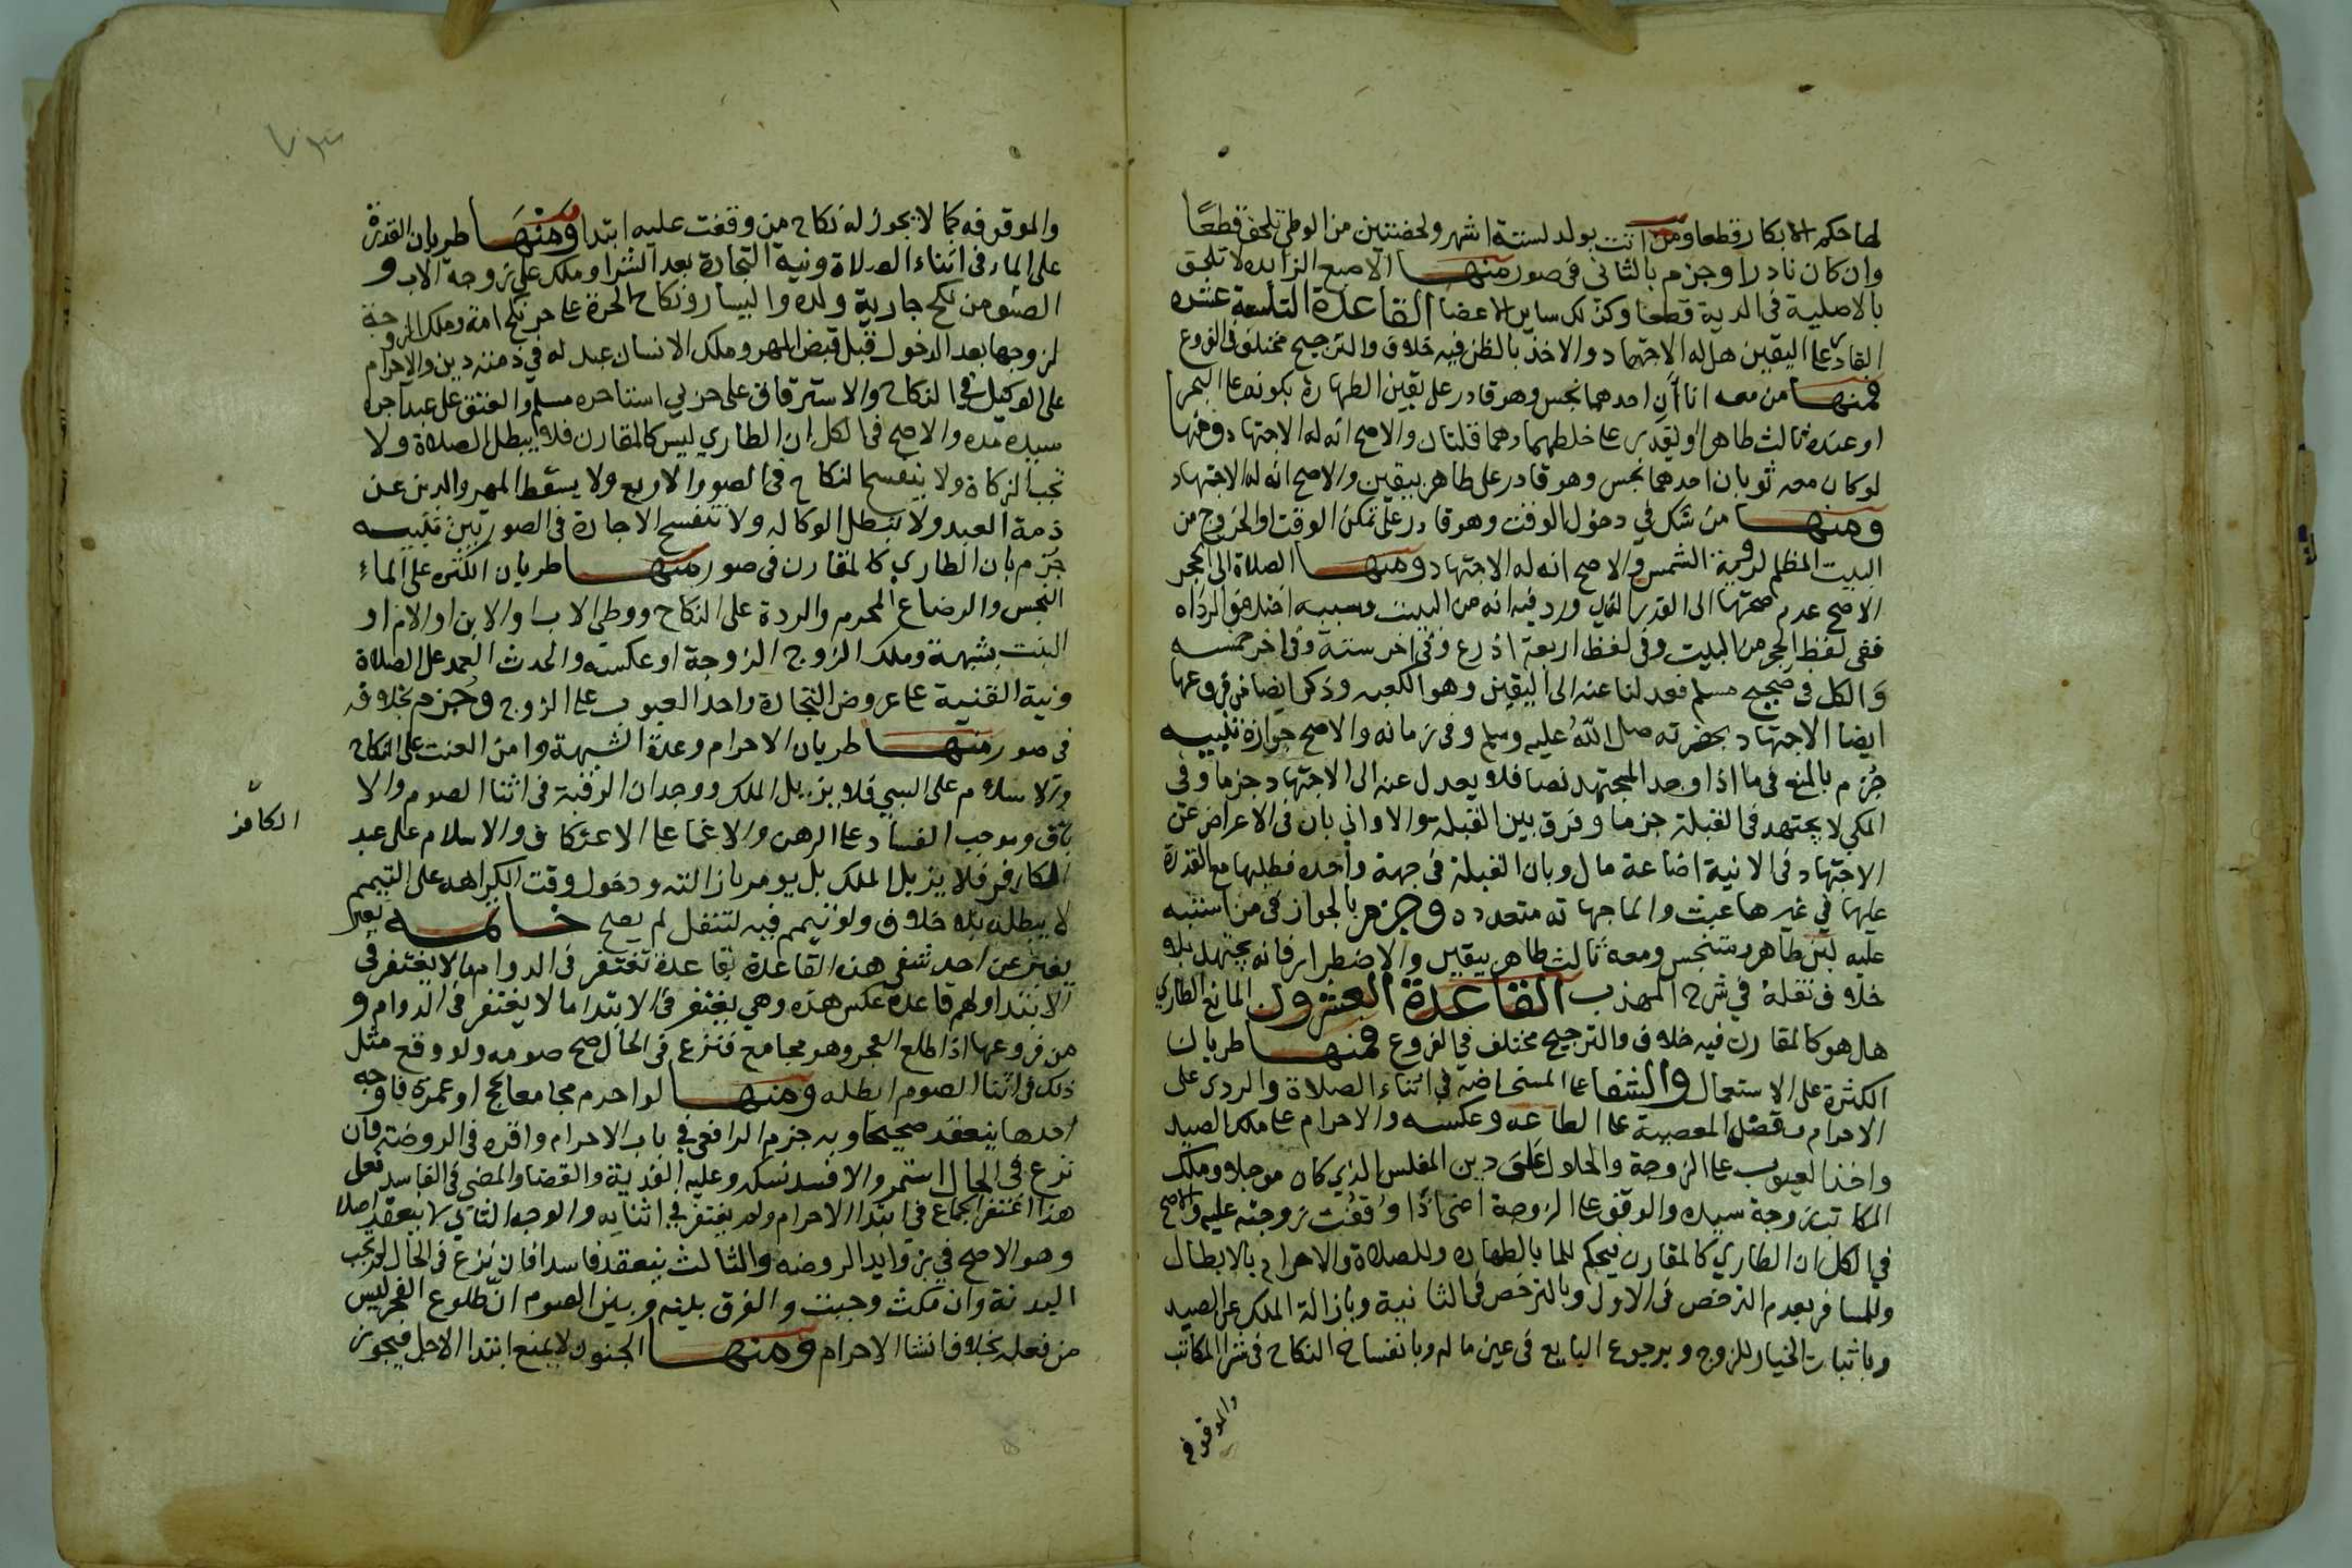 لها حكم الابكار قطعا ومن اتت بولد لستة اشهر ولحظتين من الوطي تلحق قطعًا
وان كان نادرا وجزم بالثاني في صور منها الاصبع الزايده لا تلحق
بالاصلية في الدية قطعا وكذلك ساير الاعضا القاعدة التاسعة عشره
القادر على اليقين هل له الاجتهاد والاخذ بالظن فيه خلاف والترجيح مختلف في الفروع
فمنها من معه اناآن احدهما نجس وهو قادر على يقين الطهارة بكونه على البحر
او عنده ثالث طاهر او يقدر على خلطهما وهما قلتان والاصح انه له الاجتهاد ومنها
لو كان معه ثوبان احدهما نجس وهو قادر على طاهر بيقين والاصح انه له الاجتهاد
ومنها من شك في دخول الوقت وهو قادر على تمكن الوقت او الخروج من
البيت المظلم لروية الشمس والاصح انه له الاجتهاد ومنها الصلاة الى الحجر
الاصح عدم صحتها الى القدر الذي ورد فيه انه من البيت وسببه اختلاف الرواه
ففي لفظ الحجر من البيت وفي لفظ اربعة اذرع وفي اخر ستة وفي اخر خمسه
والكل في صحيح مسلم فعدلنا عنه الى اليقين وهو الكعبه وذكر ايضا من فروعها
ايضا الاجتهاد بحضرته صلى الله عليه وسلم وفي زمانه والاصح جوازه تنبيه
جُزم بالمنع في ما اذا وجد المجتهد نصا فلا يعدل عنه الى الاجتهاد جزما وفي
المكي لا يجتهد في القبلة جزما وفرق بين القبلة والاواني بان في الاعراض عن
الاجتهاد في الانية اضاعة مال وبان القبلة في جهة واحده فطلبها مع القدرة
عليها في غيرها عبث والما جهاته متعدده وجزم بالجواز في من اشتبه
عليه لبن طاهر ومتنجس ومعه ثالث طاهر بيقين ولا اضطرار فانه يجتهد بلا
خلاف نقله في شرح المهذب القاعدة العشرون المانع الطاري
هل هو كالمقارن فيه خلاف والترجيح مختلف في الفروع فمنها طريان
الكثرة على الاستعمال والشفا على المستحاضه في اثناء الصلاة والردة على
الاحرام وقصد المعصية على الطاعه وعكسه والاحرام على ملك الصيد
واخذ العيوب على الزوجة والحلول على دين المفلس الذي كان موجلا وملك
المكاتب زوجة سيده والوقف على الزوجة اعني اذا وُقفت زوجته عليه والاصح
في الكل ان الطاري كالمقارن فيحكم للما بالطهاره وللصلاة والاحرام بالابطال
وللمسافر بعدم الترخص في الاول وبالترخص في الثانية وبازالة الملك عن الصيد
وباثبات الخيار للزوج وبرجوع البايع في عين ماله وبانفساخ النكاح في شرا المكاتب
والموقوفه
والموقوفه كما لا يجوز له نكاح من وقفت عليه ابتدا ومنها طريان القدرة
على الماء في اثناء الصلاة ونية التجارة بعد الشرا وملك على زوجة الاب و
الصنو من نكح جارية ولده واليسار ونكاح الحرة على حر نكح امة وملك الزوجة
لزوجها بعد الدخول قبل قبض المهر وملك الانسان عبد له في ذمته دين والاحرام
على الوكيل في النكاح والاسترقاق على حربي استاجره مسلم والعتق على عبد آجره
سيده مده والاصح في الكل ان الطاري ليس كالمقارن فلا يبطل الصلاة ولا
تجب الزكاة ولا ينفسخ النكاح في الصور الاربع ولا يسقط المهر والدين عن
ذمة العبد ولا تبطل الوكاله ولا تنفسخ الاجارة في الصورتين تنبيه
جزم بان الطاري كالمقارن في صور منها طريان الكثره على الماء
النجس والرضاع المحرم والردة على النكاح ووطي الاب او الابن او الام او
البنت بشبهة وملك الزوج الزوجة او عكسه والحدث العمد على الصلاة
ونية القنية على عروض التجارة واحد العيوب على الزوج وجزم بخلافه
في صور منها طريان الاحرام وعدة الشبهة وامن العنت على النكاح
والاسلام على السبي فلا يزيل الملك ووجدان الرقبة في اثنا الصوم والا
باق وموجب الفساد على الرهن والاغما على الاعتكاف والاسلام على عبد
الكافر
الكافر فلا يزيل الملك بل يومر بازالته ودخول وقت الكراهه على التيمم
لا يبطله بلا خلاف ولو تيمم فيه لتنفل لم يصح خاتمه يعبر
يعبر عن احد شقي هذه القاعدة بقاعدة تغتفر في الدوام ما لا يغتفر في
الابتدا ولهم قاعدة عكس هذه وهي يغتفر في الابتدا ما لا يغتفر في الدوام و
من فروعها اذا طلع الفجر وهو مجامع فنزع في الحال صح صومه ولو وقع مثل
ذلك في اثنا الصوم ابطله ومنها لو احرم مجامعا بحج او عمرة فاوجه
احدها ينعقد صحيحا وبه جزم الرافعي في باب الاحرام واقره في الروضة فان
نزع في الحال استمر والا فسد نسكه وعليه الفدية والقضا والمضي في الفاسد فعلى
هذا اغتفر الجماع في ابتدا الاحرام ولم يغتفر في اثنايه والوجه الثاني لا ينعقد اصلا
وهو الاصح في زوايد الروضه والثالث ينعقد فاسدا فان نزع في الحال لم تجب
البدنة وان مكث وجبت والفرق بينه وبين الصوم ان طلوع الفجر ليس
من فعله بخلاف انشا الاحرام ومنها الجنون لا يمنع ابتدا الاجل فيجوز